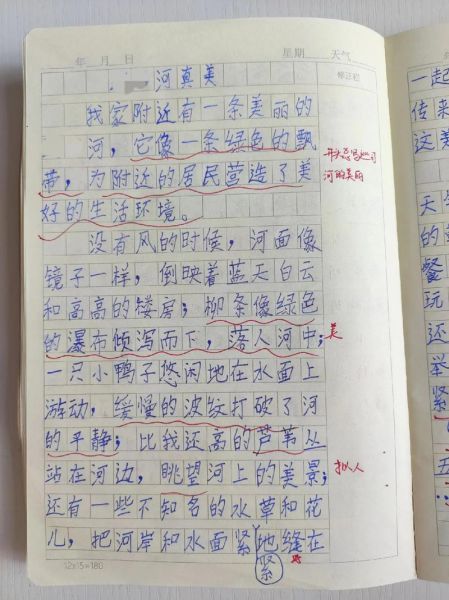 年 月 日 星期 天气
河真美 修正栏
我家附近有一条美丽的
河，它像一条绿色的飘
带，为附近的居民营造了美
河的美丽
好的生活环境。
没有风的时候，河面像
镜子一样，倒映着蓝天白云
和高高的楼房；柳条像绿色
的瀑布倾泻而下，落入河中； 美
一只小鸭子悠闲地在水面上
游动，缓慢的波纹打破了河
的平静；比我还高的芦苇丛
站在河边，眺望河上的美景； 拟人
还有一些不知名的水草和花
儿，把河岸和水面紧地缝在
紧
12×15=180
一起
传来
这美
天气
的
餐
玩
还
举
紧
五